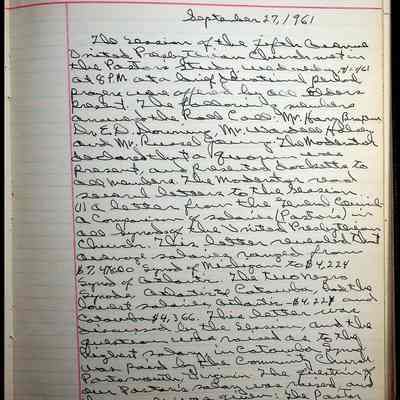 September 27, 1961
The Session of the Fifth Avenue
United Presbyterian Church met in
the Pastor's Study Wednesday 9/27/61
at 8 P.M. at a brief devotional period
prayers were offered by all Elders
present. The following members
answered the Roll Call: Mr. Harry
Dr. E.D. Downing, Mr. Wardell
and Mr. Russel Young. The Moderator
declared that a quorum was
present, and presented dockets to
all members. The Moderator read
several letters to the Session.
(1) a letter from the General Council
a Comparison of salaries (Pastor's) in
all Synods of the United Presbyterian
Church. This letter revealed that
average salaries ranged from
Synod of Michigan to $4,224
Synod of Atlantic. The two Negro
Synods Atlantic & Catawba, had the
lowest salaries, Atlantic-$4,224 and
Catawba $4,366. This letter was
discussed by the Session, and the
question was raised as to the
highest salary in Catawba Synod
was paid by the Community Church
Portsmouth, Virginia. The question of
our Pastor's salary was raised, and
the Pastor